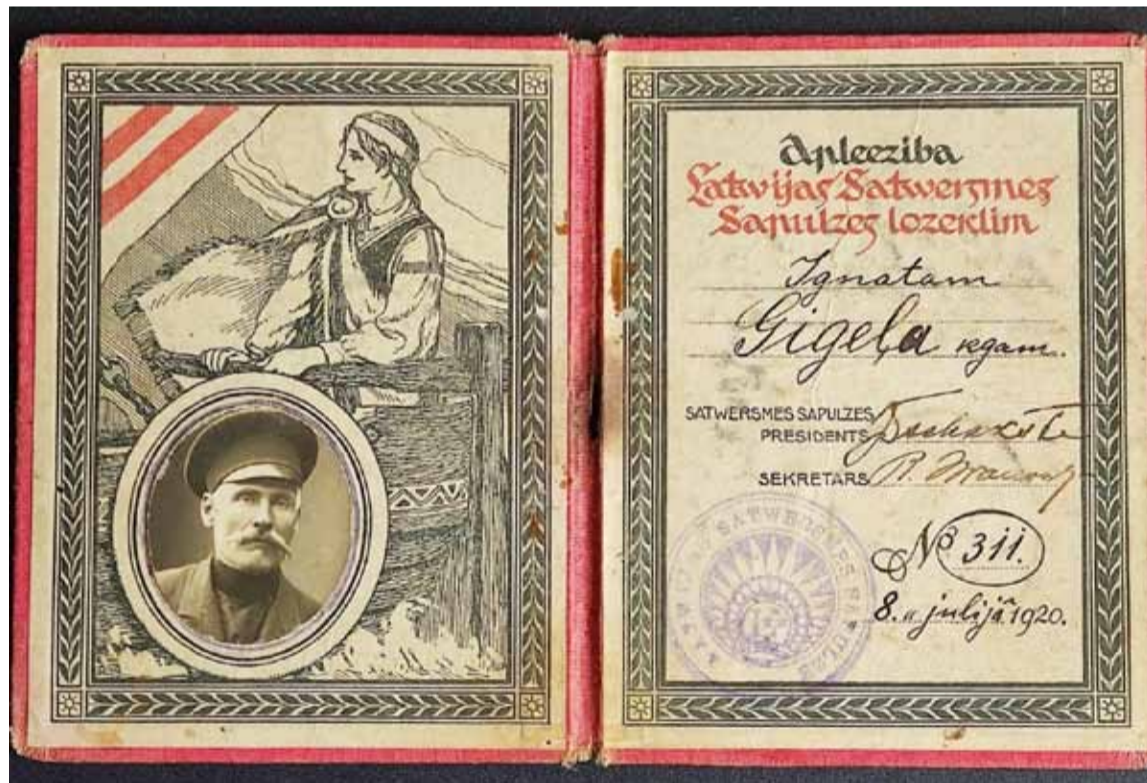 Apleeziba
Latwijas Satwersmes
Sapulzes lozeklim
Ignatam
Gigeļa kgam.
SATWERSMES SAPULZES
PRESIDENTS
SEKRETARS R.
SATWERSMES SAPULZE
№ 311.
8. julijā 1920.